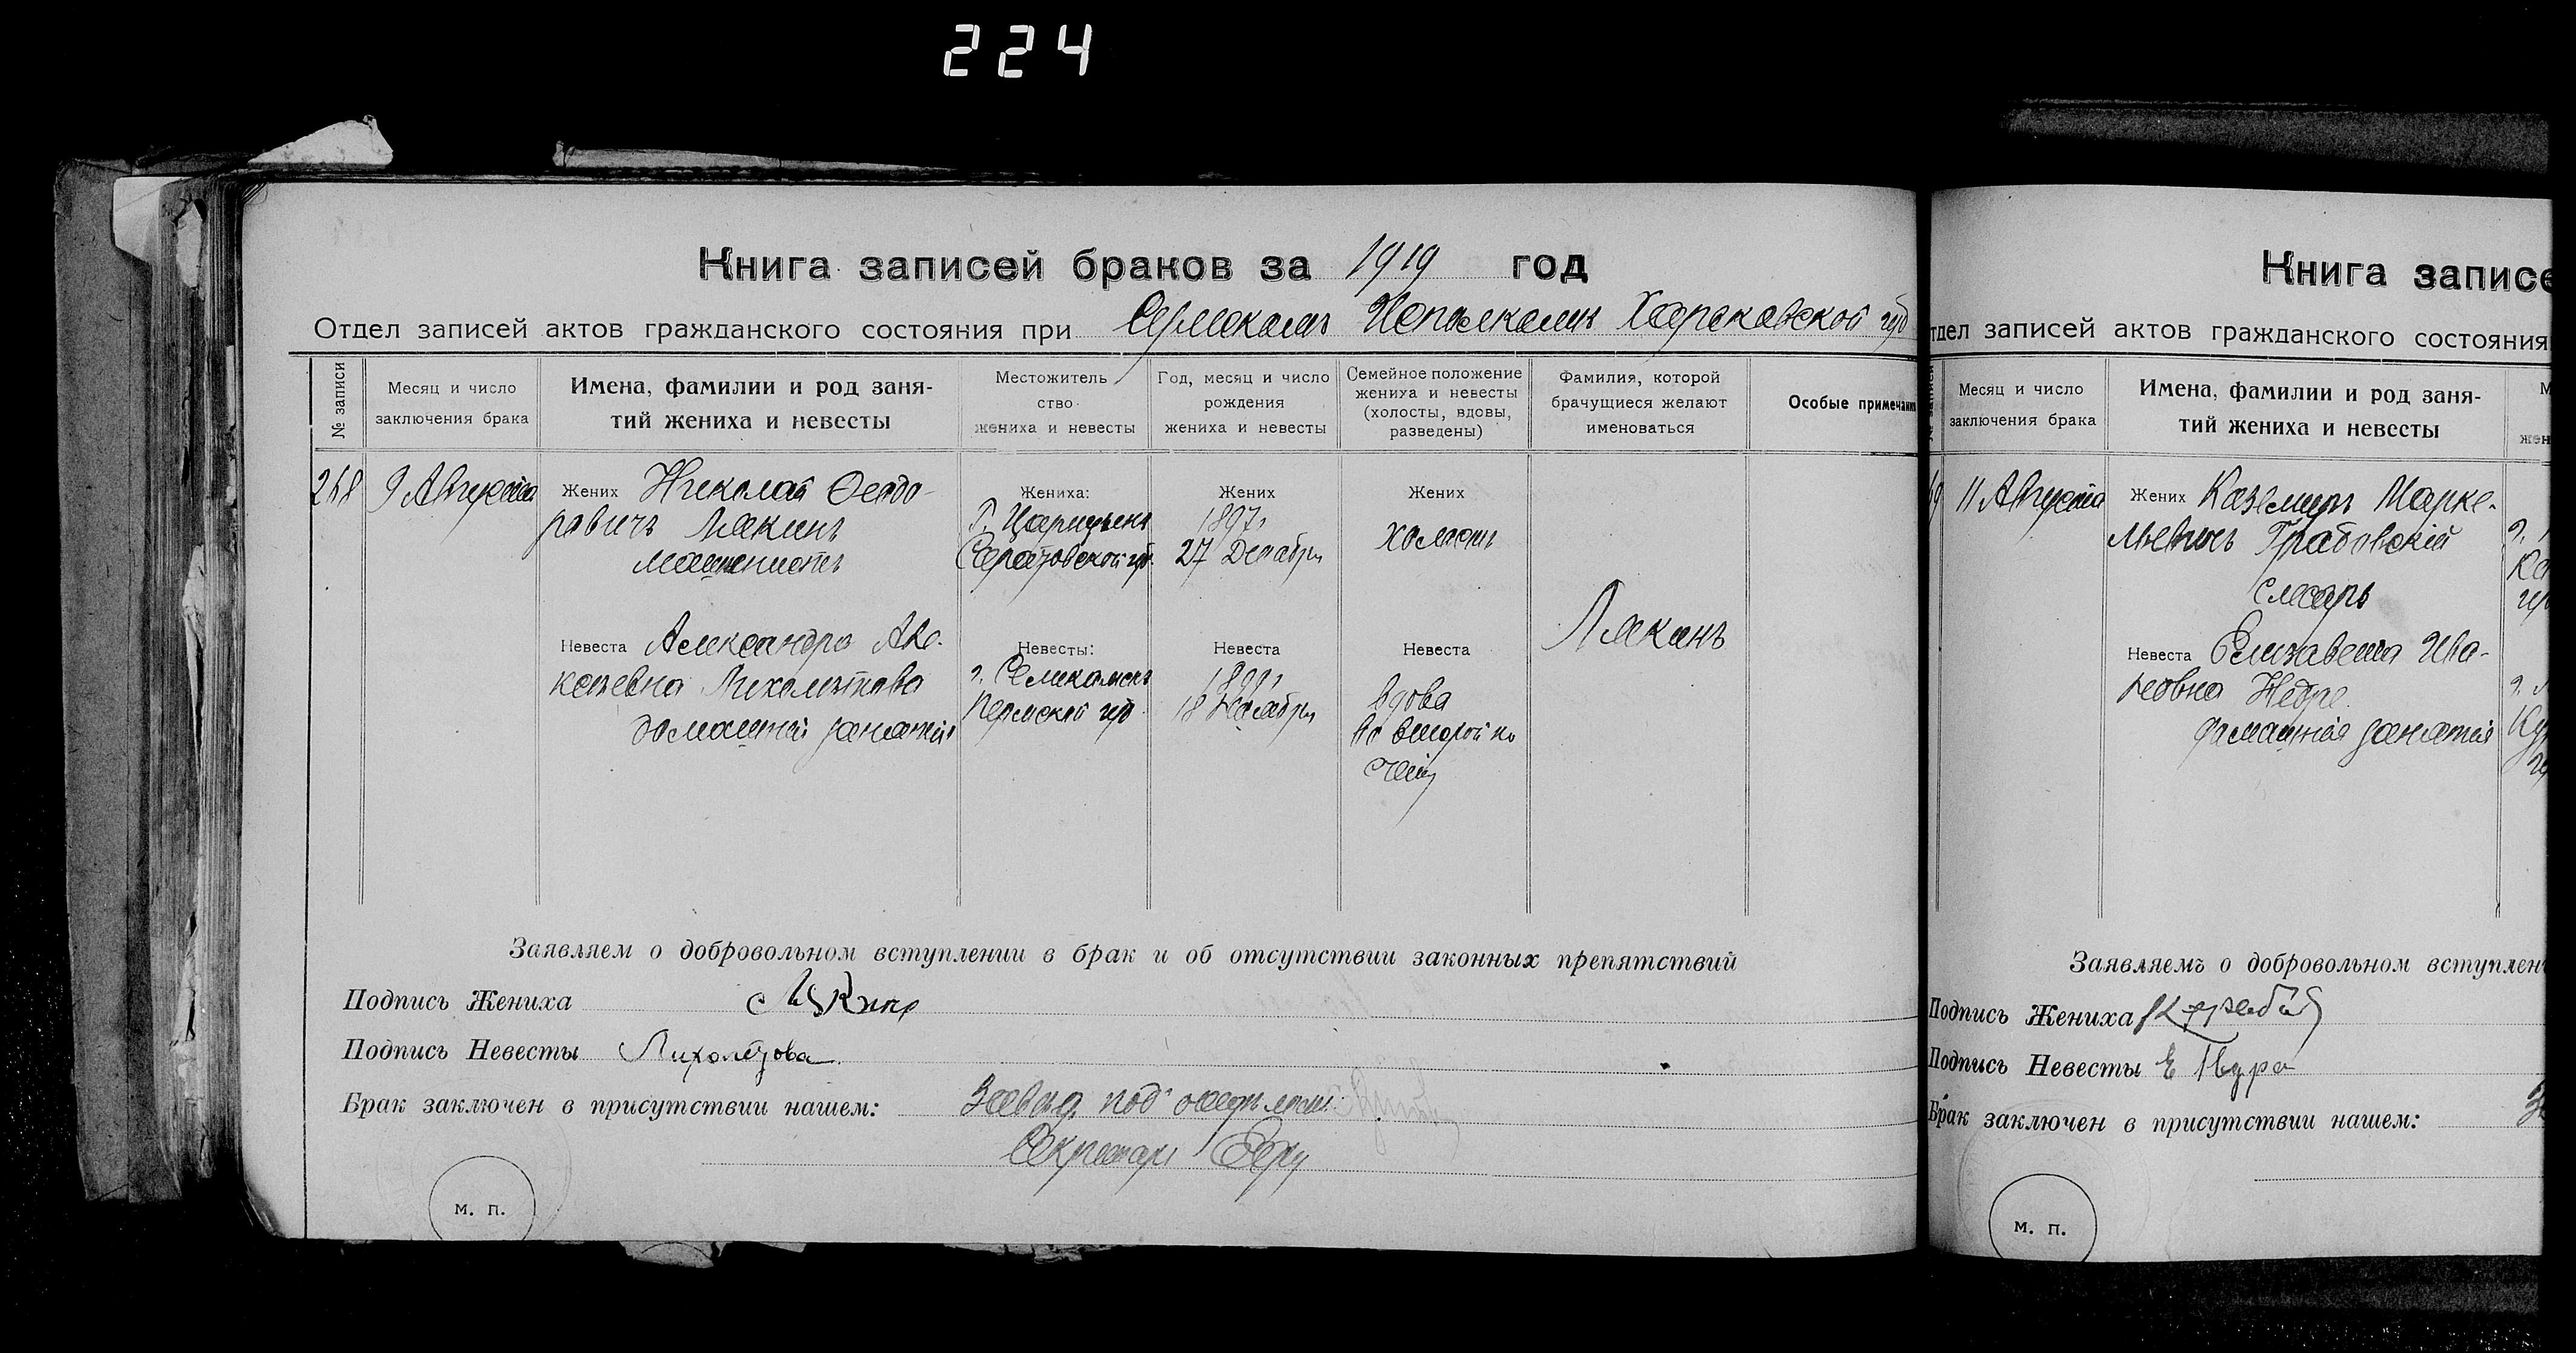 224
Книга записей браков за 1919 год
Отдел записей актов гражданского состояния при Исполкоми Харьковской губ
№ записи
Месяц и число заключения брака
Имена, фамилии и род занятий жениха и невесты
Местожительство жениха и невесты
Год, месяц и число рождения жениха и невесты
Семейное положение жениха и невесты (холосты, вдовы, разведены)
Фамилия, которой брачущиеся желают именоваться
Особые примечани
268
9 Августа
Жених Николай Феодо-
ровичъ Лякинъ
машинистъ
Жениха:
г. Царицынъ
Саратовской губ.
Жених
1897г
27 Декабря
Жених
холостъ
Невеста Александра
Лихолетова
домашнія занятія
Невесты:
г. Соликамскъ
Пермской губ
Невеста
18 Ноября
Невеста
вдова
во второй
Лякинъ
Заявляем о добровольном вступлении в брак и об отсутствии законных препятствий
Подпись Жениха
Подпись Невесты Лихолетова
Брак заключен в присутствии нашем: Завед. под отделом
Секретарь
м. п.
Книга записе
тдел записей актов гражданского состояния
Месяц и число заключения брака
Имена, фамилии и род занятий жениха и невесты
11 Августа
Жених Каземиръ Марке-
Грабовскій
слесарь
Невеста Елизавета Ива-
новна
домашнія занятія
Заявляемъ о добровольном вступлен
Подпись Жениха
Подпись Невесты Е
Брак заключен в присутствии нашем:
м. п.